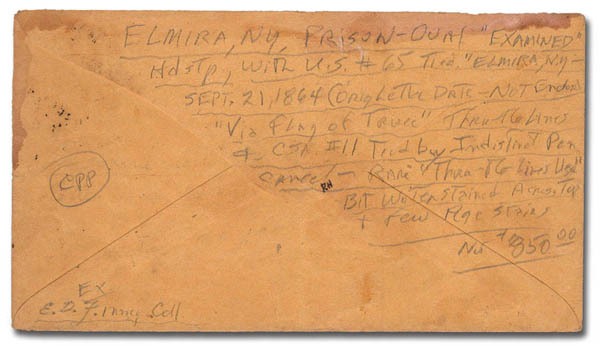 ELMIRA, NY, PRISON-Oval "EXAMINED"
Hdstp, with U.S. #65 Tied "ELMIRA, NY-
SEPT. 21, 1864 (Orig Letter Date - Not Enclosed)
"Via Flag of Truce" Thru The Lines
& CSA #11 Tied by Indistinct Pen
Cancel - Rare "Thru The Lines Use"
RH
Bit Waterstained Across Top
+ Few Age Stains
Net $850.00
CPP
EX
E. D. Finney Coll